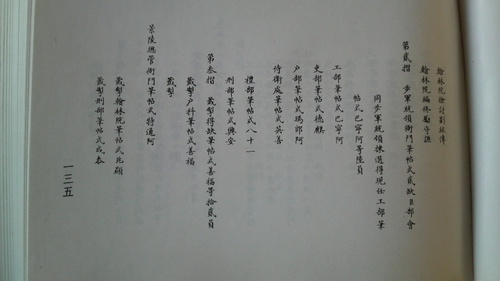 翰林院檢討劉林偉
翰林院編修勵守謙
第貳摺 步軍統領衙門筆帖式貳缺因部會
同步軍統領揀選得現任工部筆
帖式巴寧阿等陸員
工部筆帖式巴寧阿
吏部筆帖式德麒
戶部筆帖式瑪郎阿
侍衛處筆帖式英善
禮部筆帖式八十一
刑部筆帖式興安
第叁摺 裁掣得缺筆帖式善福等拾貳員
裁掣戶科筆帖式善福
裁掣
景陵總管衙門筆帖式特通阿
裁掣翰林院筆帖式兆顯
裁掣刑部筆帖式成泰
一三五